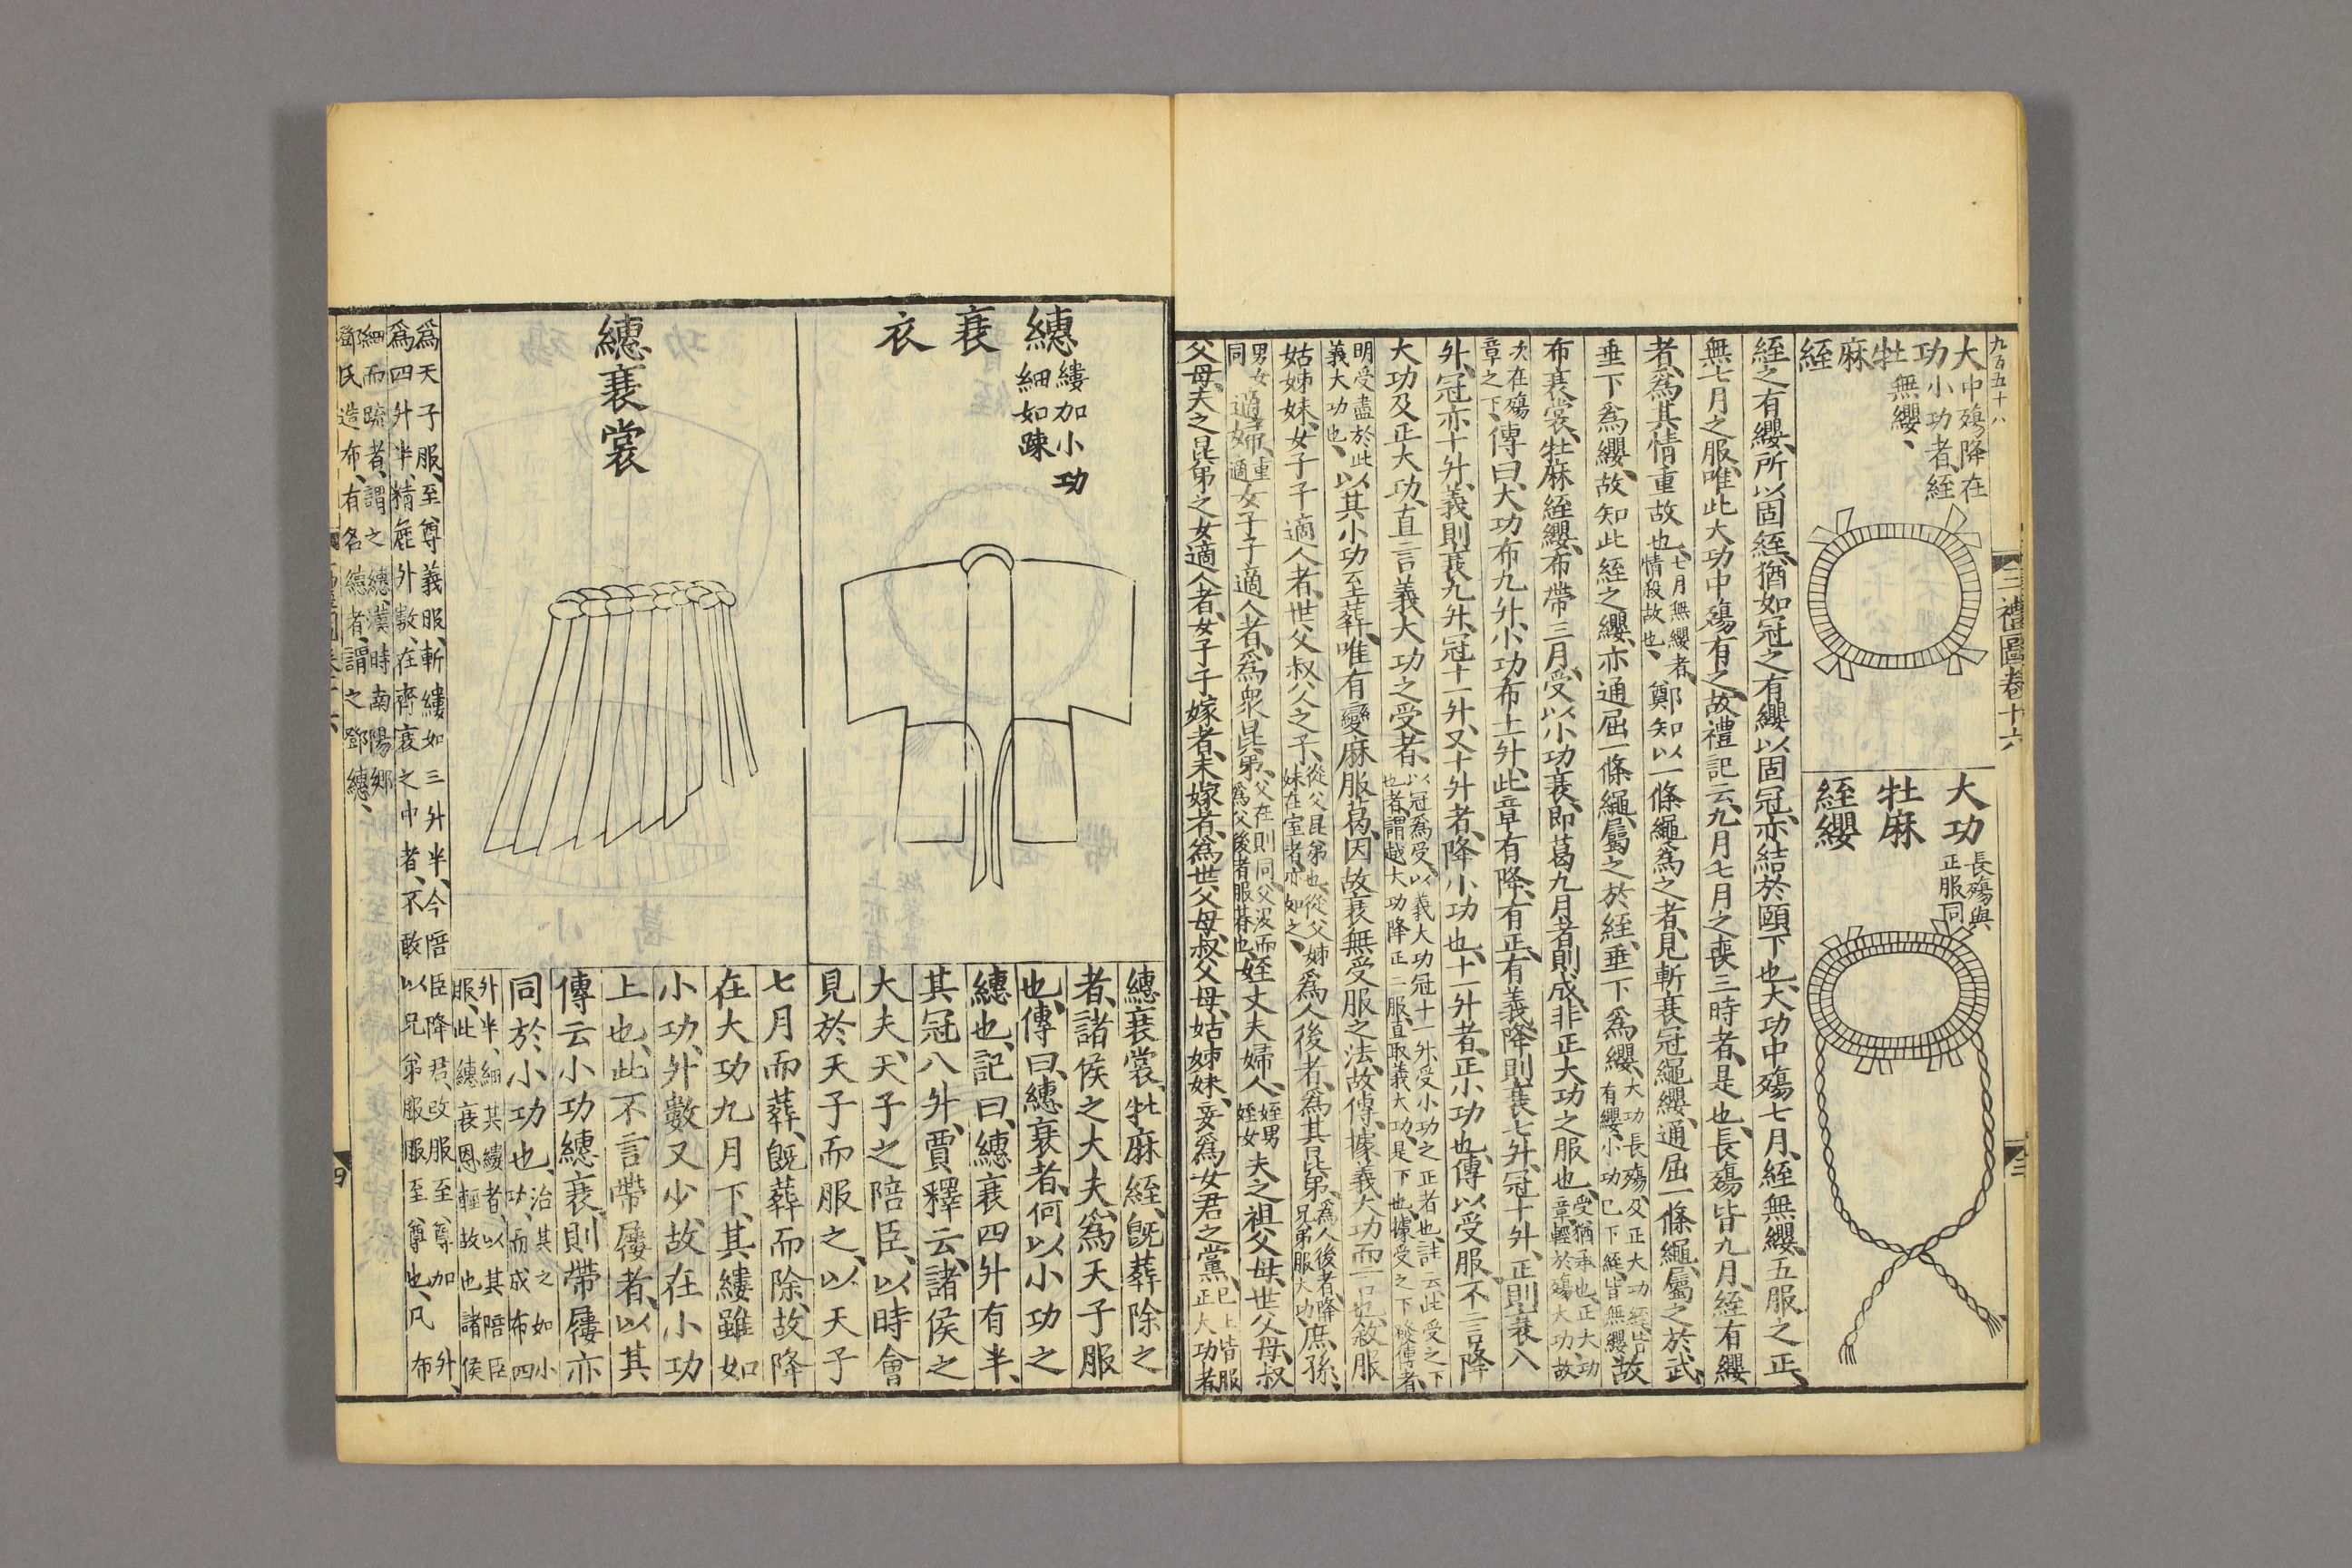 九百五十八
大功牡麻絰
中殤降在
小功者絰
無纓、
大功
牡麻
絰纓
長殤與
正服同
三禮圖卷十六
三
絰之有纓、所以固絰、猶如冠之有纓以固冠、亦結於頤下也、大功中殤七月、絰無纓、五服之正、
無七月之服、唯此大功中殤有之、故禮記云、九月七月之喪三時者、是也、長殤皆九月、絰有纓
者、爲其情重故也、七月無纓者、情殺故也、鄭知以一條繩爲之者、見斬衰冠繩纓、通屈一條繩、屬之於武、
垂下爲纓、故知此絰之纓、亦通屈一條繩、屬之於絰、垂下爲纓、大功長殤及正大功絰皆有纓、小功已下絰皆無纓、故
布衰裳、牡麻絰纓、布帶三月、受以小功衰、即葛九月者、則成、非正大功之服也、受猶承也、正大功章、輕於殤大功、故
次在殤章之下、傳曰、大功布九升、小功布上升、此章有降、有正、有義、降則衰七升、冠十升、正則衰八
升、冠亦十升、義則衰九升、冠十一升、又十升者、降小功也、十一升者、正小功也、傳以受服、不言降
大功及正大功、直言義大功之受者、以冠爲受、以義大功冠十一升、受小功之正者也、註云、此受之下也者、謂越大功降正二服、直取義大功、是下也、據受之下發傳者、
明受盡於此義大功也、以其小功至葬、唯有變麻服葛、因故衰無受服之法、故傳據義大功而言也、敘服
姑姊妹、女子子適人者、世父叔父之子、從父昆弟也、從父姊妹在室者、亦如之、爲人後者、爲其昆弟、爲人後者、降兄弟服大功、庶孫、
男女同適婦、重適女子子適人者、爲衆昆弟、父在則同、父沒而爲父後者服朞也、姪丈夫婦人、姪男姪女夫之祖父母、世父母、叔
父母、夫之昆弟之女適人者、女子子嫁者、未嫁者、爲世父母、叔父母、姑姊妹、妾爲女君之黨、已上皆服正大功者
繐衰衣
縷加小功
細如踈
繐衰裳
繐衰裳、牡麻絰、旣葬除之
者、諸侯之大夫、爲天子服
也、傳曰、繐衰者、何以小功之
繐也、記曰、繐衰四升有半、
其冠八升、賈釋云、諸侯之
大夫、天子之陪臣、以時會
見於天子而服之、以天子
七月而葬、旣葬而除、故降
在大功九月下、其縷雖如
小功、升數又少、故在小功
上也、此不言帶屨者、以其
傳云小功繐衰、則帶屨亦
同於小功也、治其之如小功、而成布四
升半、細其縷者、以其陪臣
服、此繐衰恩輕故也、諸侯
爲天子服、至尊義服、斬縷如三升半、今陪臣降君、改服至尊、加外、
爲四升半、精麄升數、在齊衰之中者、不敢以兄弟服服至尊也、凡布
細而疏者、謂之繐、漢時南陽鄉
鄧氏造布、有名繐者、謂之鄧繐、
四